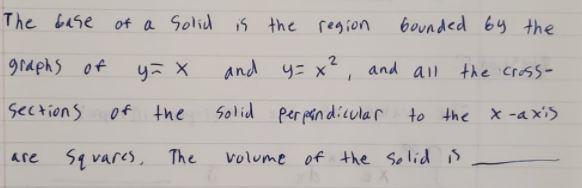 The base of a Solid is the region bounded by the
graphs of y = x and y = x², and all the cross-
sections of the solid perpendicular to the x-axis
are squares. The volume of the solid is ______